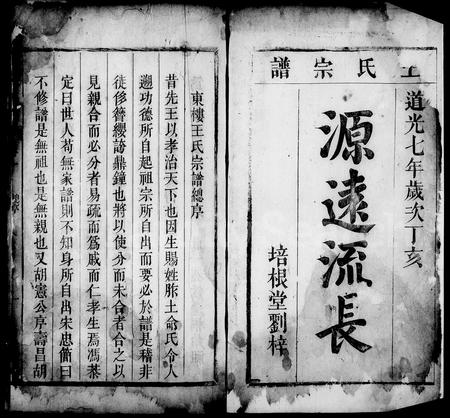 王氏宗譜
道光七年歲次丁亥
源遠流長
培根堂劉梓
東樓王氏宗譜總序
昔先王以孝治天下也因生賜姓胙土命氏令人
遡功德所自起祖宗所自出而要必於譜是稽非
徒侈簪纓誇鼎鐘也將以使分而未合者合之以
見親合而必分者易疏而爲戚而仁孝生焉馮恭
定曰世人苟無家譜則不知身所自出朱忠節曰
不修譜是無祖也是無親也又胡憲公序壽昌胡